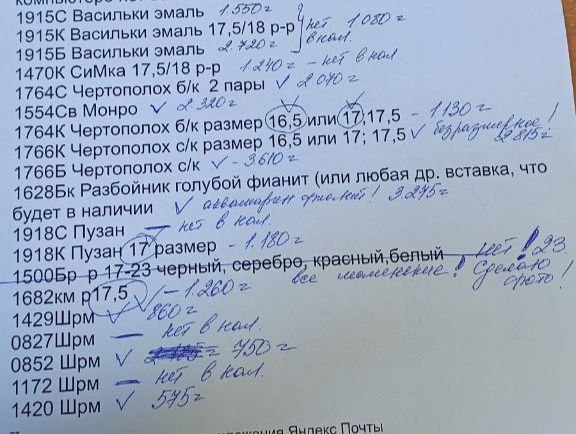 1915С Васильки эмаль 1.550г
1915К Васильки эмаль 17,5/18 р-р нет 1 080г
1915Б Васильки эмаль 2.720г в нал.
1470К СиМка 17,5/18 р-р 1.240г - нет в нал
1764С Чертополох б/к 2 пары ✓ 2.070г
1554Св Монро ✓ 2.320г
1764К Чертополох б/к размер 16,5 или 17;17,5 - 1130г
1766К Чертополох с/к размер 16,5 или 17; 17,5 ✓ безразмерное! 2.815г
1766Б Чертополох с/к ✓ - 3.610г
1628Бк Разбойник голубой фианит (или любая др. вставка, что
будет в наличии ✓ аквамарин фианит! 3.275г
1918С Пузан — нет в нал.
1918К Пузан 17 размер - 1.180г
1500Бр р 17-23 черный, серебро, красный,белый нет! 23.
все маленькие! Сделаю фото!
1682км р17,5 ✓ - 1.260г
1429Шрм ✓ 860г
0827Шрм — нет в нал.
0852 Шрм ✓ 750г
1172 Шрм — нет в нал.
1420 Шрм ✓ 575г
Яндекс Почты